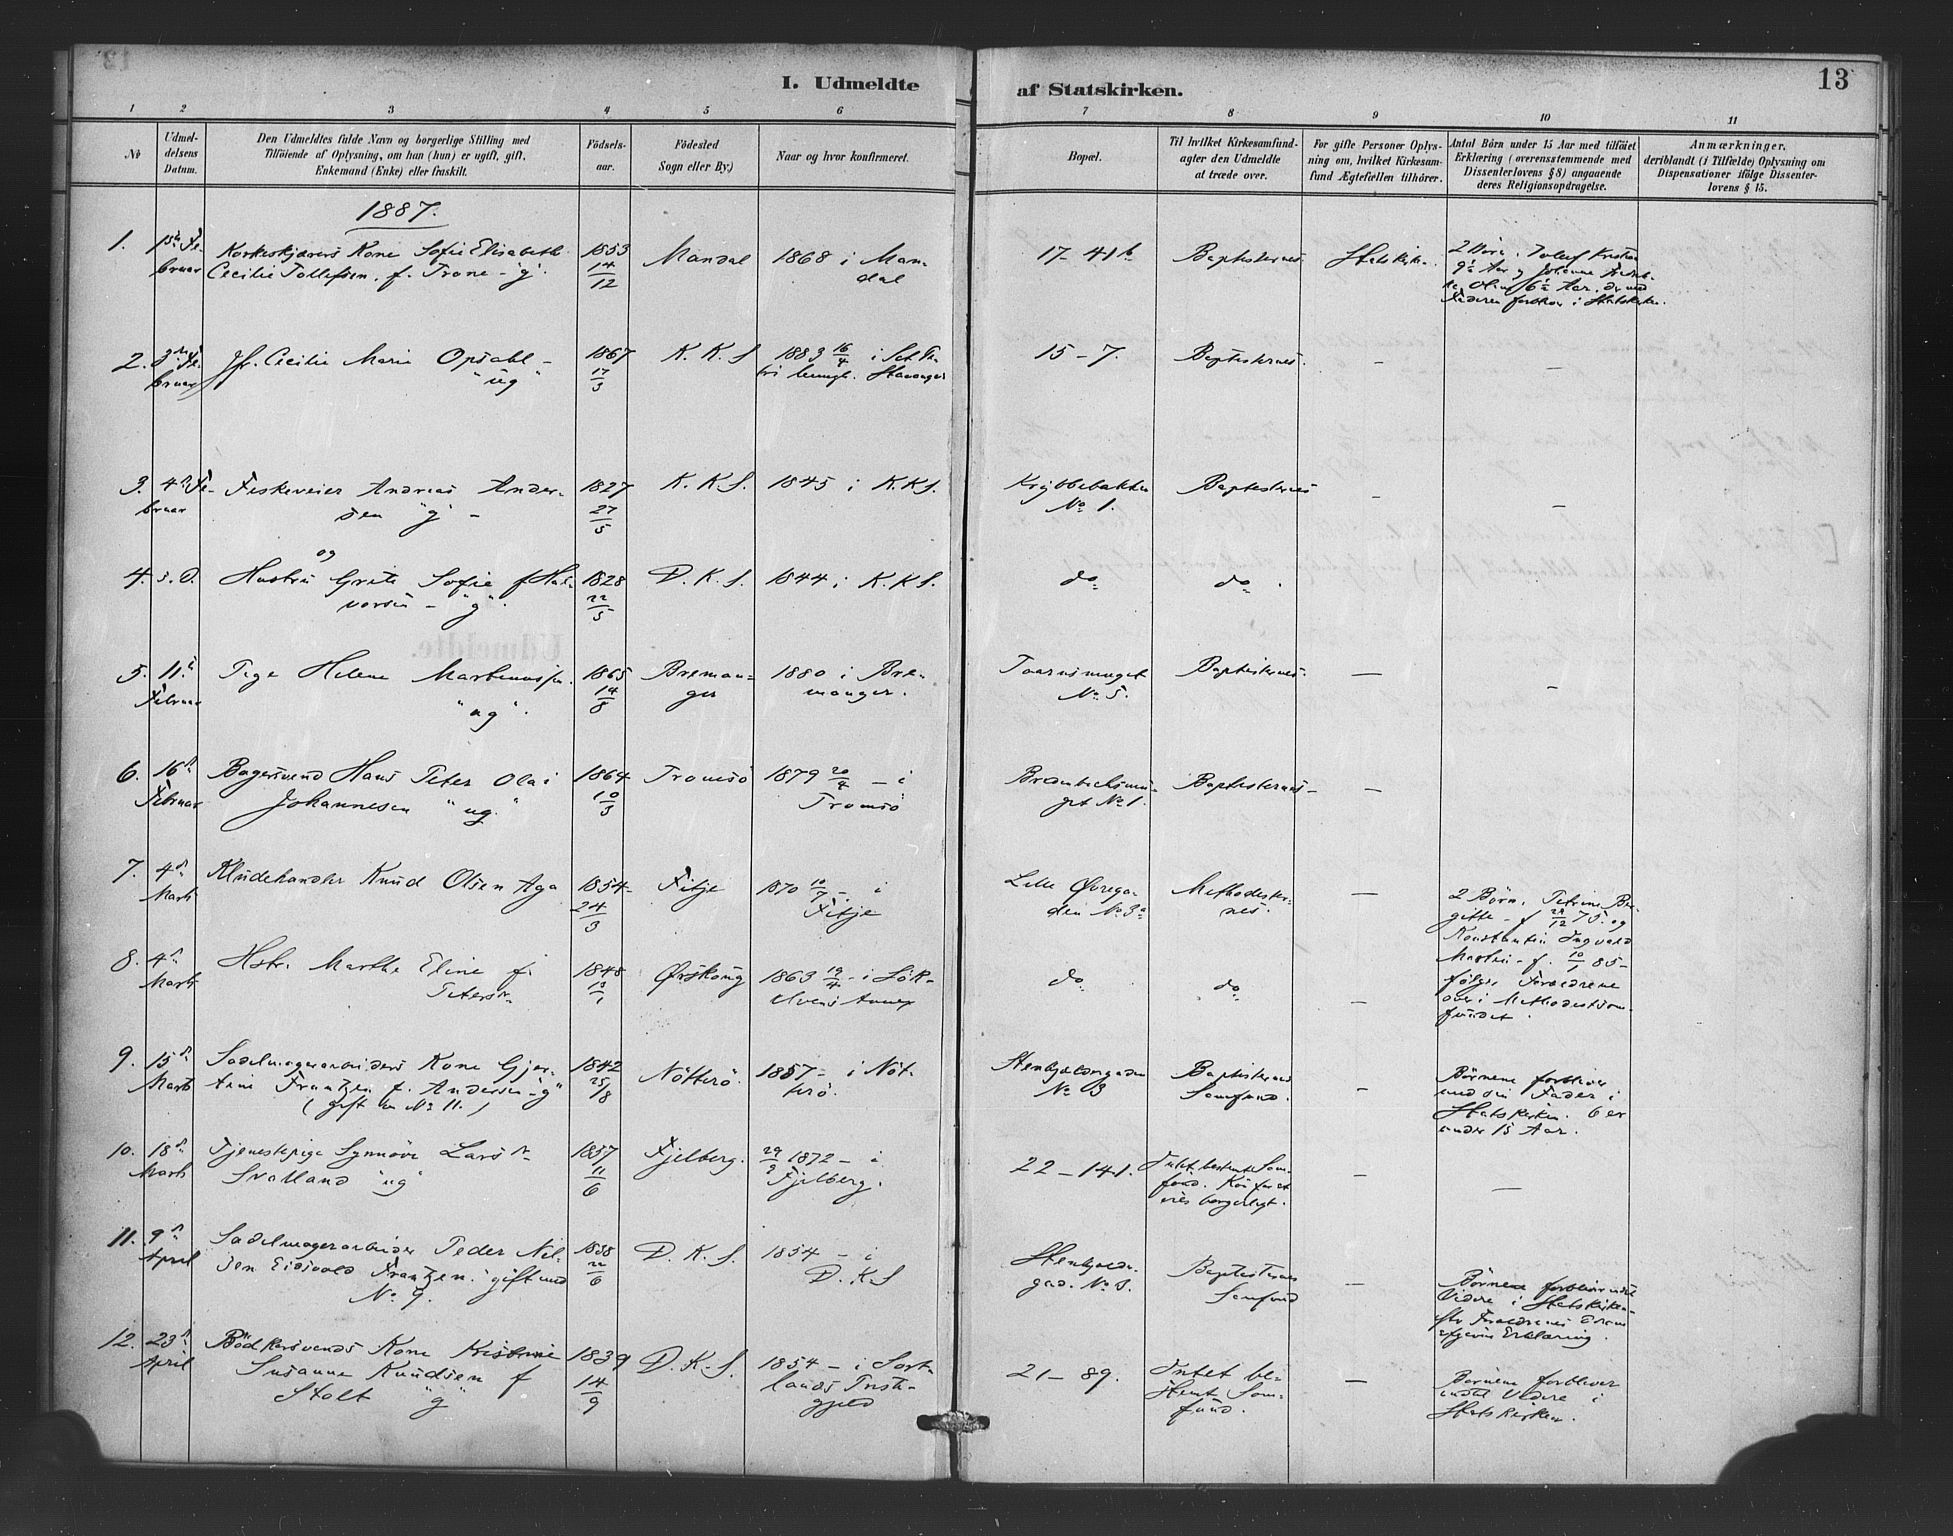 13
I. Udmeldte af Statskirken.
1 2 3 4 5 6 7 8 9 10 11
No
Udmel-
delsens
Datum.
Den Udmeldtes fulde Navn og borgerlige Stilling med
Tilföiende af Oplysning, om han (hun) er ugift, gift,
Enkemand (Enke) eller fraskilt.
Födsels-
aar.
Födested
Sogn eller By.)
Naar og hvor konfirmeret.
Bopæl.
Til hvilket Kirkesamfund-
agter den Udmeldte
at træde over.
For gifte Personer Oplys-
ning om, hvilket Kirkesam-
fund Ægtefællen tilhörer.
Antal Börn under 15 Aar med tilföiet
Erklæring (overensstemmende med
Dissenterlovens § 8) angaaende
deres Religionsopdragelse.
Anmærkninger,
deriblandt (i Tilfælde) Oplysning om
Dispensationer ifölge Dissenter-
lovens § 15.
1887.
1.
Fe-
bruar
Kone Sofie Elisabeth
Cecilie Tollefsen, f. Trane - "g".
1853
14
12
Mandal
1868 i Man-
dal
17-41b
Baptisternes
Statskirken.
2 Börn. Tollef Kristian
9½ Aar og Johanne
Oline 6½ Aar. der med
Faderen forbliver i Statskirken.
2.
3die Fe-
bruar
Jfr. Cecilie Marie Opsahl -
"ug"
1867
17
3
K. K. S
1883 16/4 i Sct. Pe-
tri Menigh. Stavanger
15 - 7.
Baptisternes.
-
-
3.
4d Fe-
bruar
Fiskeveier Andreas Ander-
sen "g" -
1827
27
5
K. K. S.
1845 i K.K.S.
Krybbebakken
No 1.
Baptisternes
-
-
4.
s. D.
og
Hustru Grete Sofie f Hal-
vorsen - "g".
1828
22
5
D. K. S.
1844 i K.K.S.
do
do
5.
11te
Februar
Pige Helene Martinussen.
"ug".
1865
14
8
Breman-
ger
1880 i Bre-
manger.
Taarnsmuget
No 5.
Baptisternes.
-
-
6.
16d
Februar
Bagersvend Hans Peter Olai
Johannesen "ug"
1864
10
3
Tromsö
1879 20/4 - i
Tromsö
No 1.
Baptisternes -
-
7.
4d
Marts
Kludehandler Knud Olsen Aga
1854
24
3
Fitje
1870 10/7 - i
Fitje
Lille Øvrega-
den No 3a
Methodister-
nes.
-
2 Börn. Petrine Bir-
gitte - f 29/12 75. og
Konstantin Ingvald
Martin - f. 10/1 85 -
følger Forældrene
over i Methodistsam-
fundet.
8.
4d
Marts
Hstr. Marthe Eline f.
Petersd.
1848
13
1
Ørskoug
1863 19/4 - i Sök-
elvens Annex
do
do
-
9.
15d
Marts
Sadelmagerarbeiders Kone Gjer-
tine Frantzen f. Andersen "g"
(gift m No 11.)
1842
25/8
Nötterö.
1857 - i Nöt-
terö.
Stenkjeldergaden
No 3
Baptisternes
Samfund.
-
Børnene forbliver
med sin Fader i
Statskirken. 6 er
under 15 Aar.
10.
18d
Marts
Tjenestepige Synnöve Larsd
Svalland "ug"
1857
11
6
Fjelberg.
29/9 1872 - i
Fjelberg.
22 - 141.
Intet bestemt Sam-
fund. Kun for at
vies borgerligt.
-
-
11.
9d
April
Sadelmagerarbeider Peder Nil-
sen Eidsvold Frantzen. gift med
No 9.
1838
22
6
D. K. S.
1854 - i
D. K. S
Stenkjelder-
gad. No 3.
Baptisternes
Samfund
-
Børnene forbliver indtil
Videre i Statskirken
Forældrenes
afgivne Erklæring.
12.
23d
April
Bödkersvends Kone Kristine
Susanne Knudsen f
Stolt "g"
1839
14
9
D. K. S.
1854 - i Sort-
lands Præste-
gjeld
21 - 89.
Intet be-
stemt Sam-
fund.
-
Børnene forbliver
indtil Videre i
Statskirken.